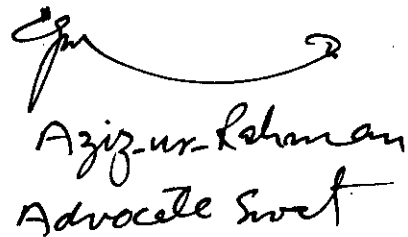 Aziz-ur-Rahman
Advocate Swat